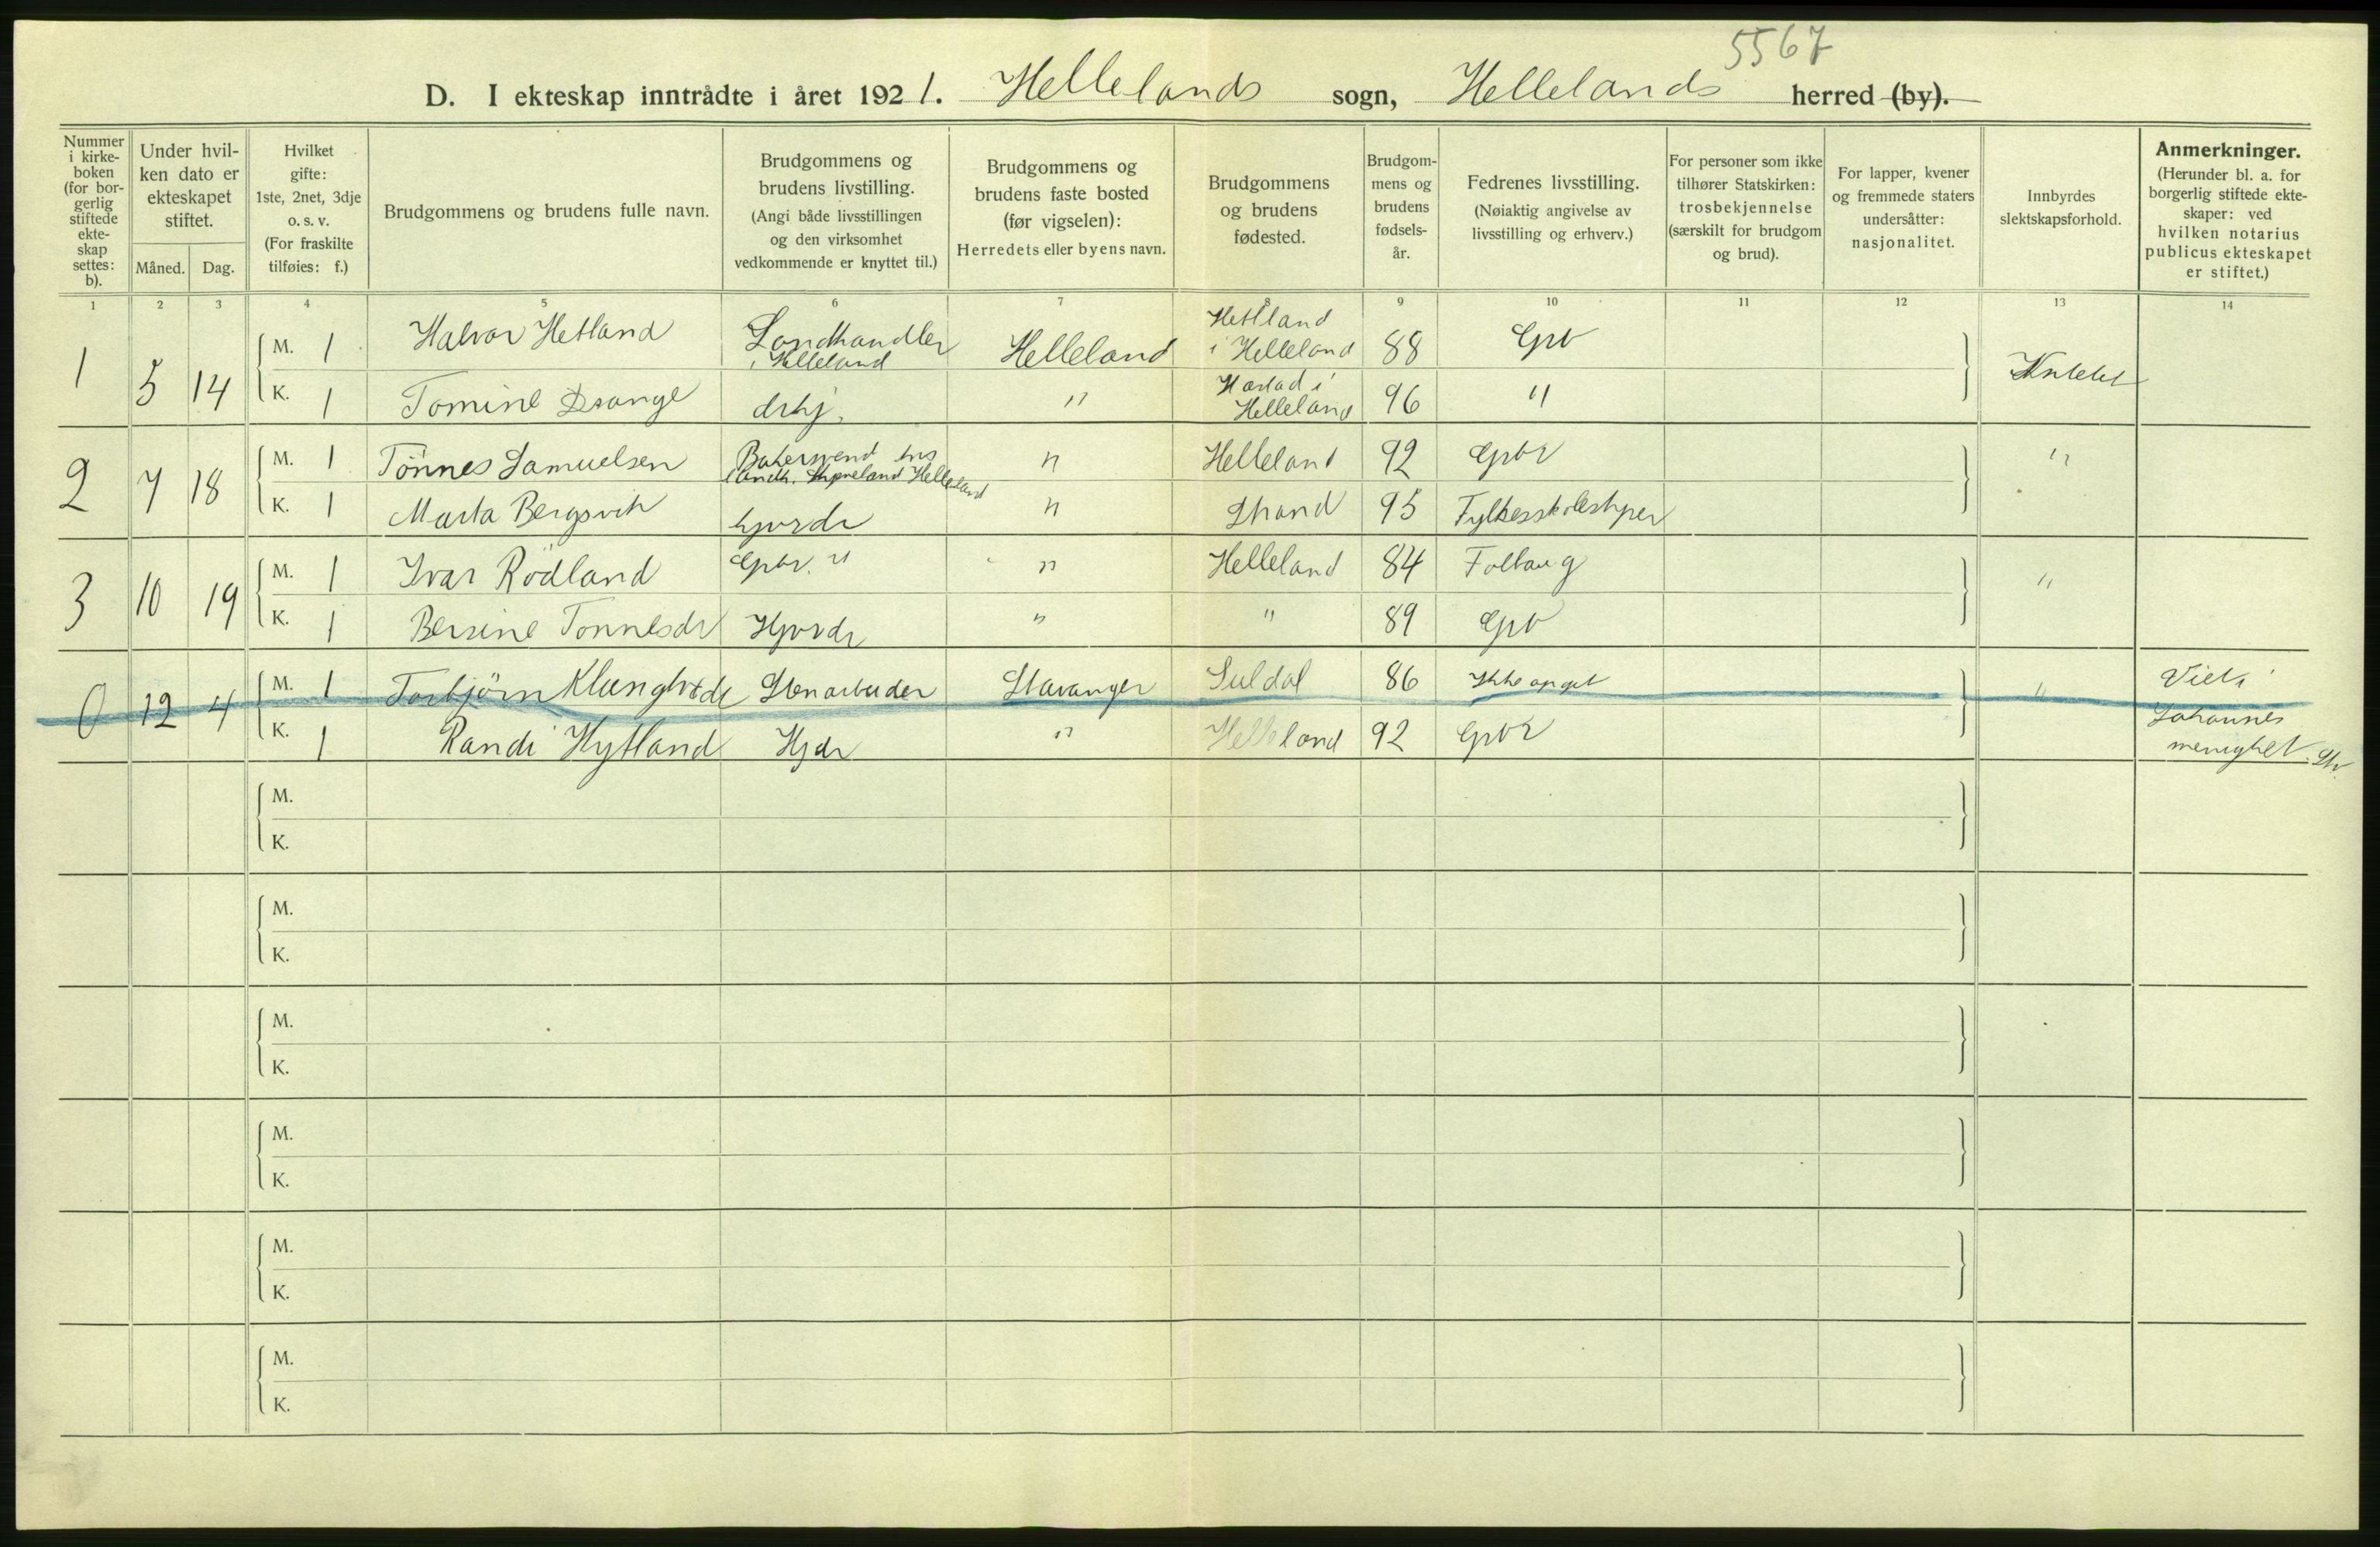 5567
D. I ekteskap inntrådte i året 1921. Hellelands sogn, Hellelands herred (by).
Nummer i kirke-boken (for bor-gerlig stiftede ekte-skap settes: b).
Under hvil-ken dato er ekteskapet stiftet.
Måned. Dag.
Hvilket gifte: 1ste, 2net, 3dje o. s. v. (For fraskilte tilføies: f.)
Brudgommens og brudens fulle navn.
Brudgommens og brudens livstilling. (Angi både livsstillingen og den virksomhet vedkommende er knyttet til.)
Brudgommens og brudens faste bosted (før vigselen): Herredets eller byens navn.
Brudgommens og brudens fødested.
Brudgom-mens og brudens fødsels-år.
Fedrenes livsstilling. (Nøiaktig angivelse av livsstilling og erhverv.)
For personer som ikke tilhører Statskirken: trosbekjennelse (særskilt for brudgom og brud).
For lapper, kvener og fremmede staters undersåtter: nasjonalitet.
Innbyrdes slektskapsforhold.
Anmerkninger. (Herunder bl. a. for borgerlig stiftede ekte-skaper: ved hvilken notarius publicus ekteskapet er stiftet.)
1 2 3 4 5 6 7 8 9 10 11 12 13 14
1 5 14 M. 1 Halvor Hetland Landhandler i Helleland Helleland Hetland i Helleland 88 Gbr
K. 1 Tomine Drange " Helleland 96 "
2 7 18 M. 1 Tönnes Samuelsen Bakersvend hos landh. Helleland " Helleland 92 Gbr "
K. 1 Marta Bergsvik " Strand 95
3 10 19 M. 1 Ivar Rödland Gbr. " " Helleland 84 Foltaug "
K. 1 Bersine Tonnesdr " " 89 Gbr
0 12 4 M. 1 Torbjörn Stenarbeider Stavanger Suldal 86 Ikke opgit " Viet i
K. 1 Randi Hytland Hjdr " Helleland 92 Gbr Johannes
menighet. Stv.
M.
K.
M.
K.
M.
K.
M.
K.
M.
K.
M.
K.